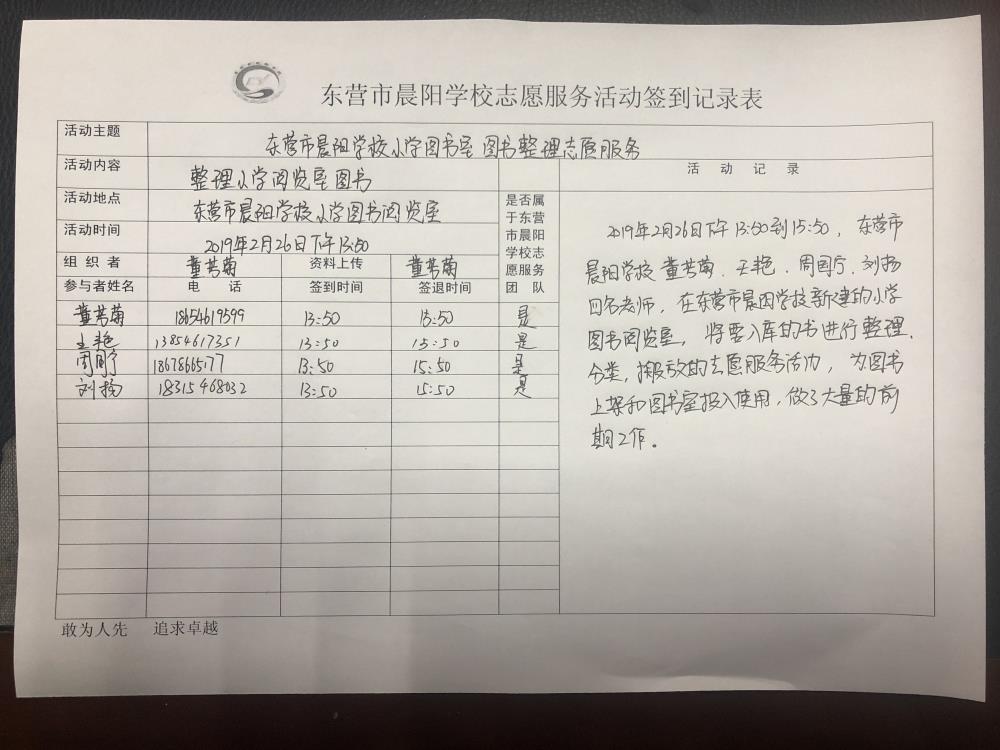 东营市晨阳学校志愿服务活动签到记录表
活动主题 东营市晨阳学校小学图书室图书整理志愿服务
活动内容 整理小学阅览室图书
活动地点 东营市晨阳学校小学图书阅览室
活动时间 2019年2月26日下午13:50
组织者 董芳菊 资料上传 董芳菊
参与者姓名 电话 签到时间 签退时间 是否属于东营市晨阳学校志愿服务团队
董芳菊 18654619599 13:50 15:50 是
王艳 13854617351 13:50 15:50 是
周围宁 18678665177 13:50 15:50 是
刘扬 18315468032 13:50 15:50 是
活动记录
2019年2月26日下午13:50到15:50，东营市
晨阳学校董芳菊、王艳、周围宁、刘扬
四名老师，在东营市晨阳学校新建的小学
图书阅览室，将要入库的书进行整理、
分类，搬放的志愿服务活动，为图书
上架和图书室投入使用，做了大量的前
期工作。
敢为人先 追求卓越